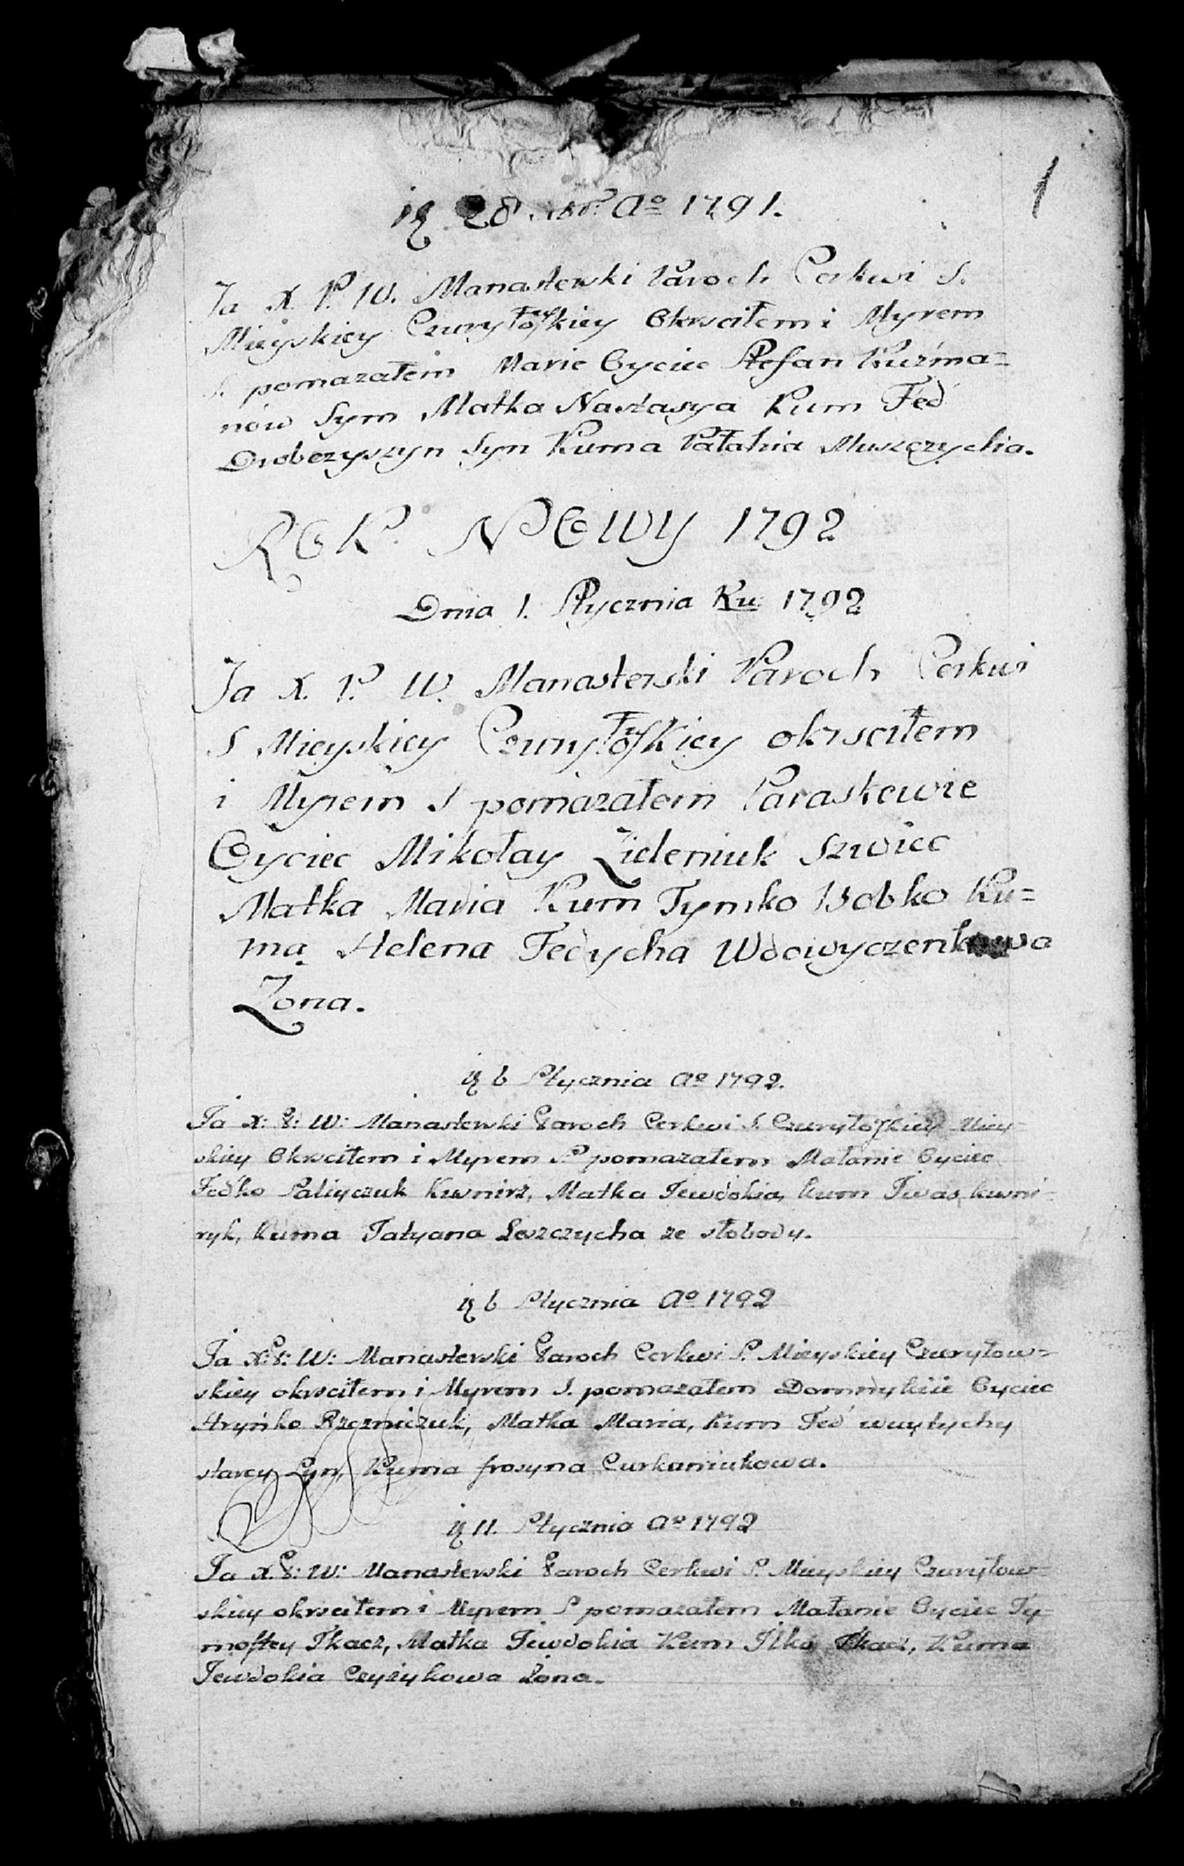 1
28 Ao 1791.
Ja X. P. W. Manasterski Paroch Cerkwi S.
Mieyskiey Czuryłoſkiey Okrsciłem i Myrem
S. pomazałem Marie Oyciec Stefan Kuźma-
nów Syn Matka Nastasya Kum Fed
Drobczyszyn Syn Kuma Pałahia Muszczycha.
ROK NOWY 1792
Dnia 1. Stycznia Ru 1792
Ja X. P. W. Manasterski Paroch Cerkwi
S Mieyskiey Czuryłoſkiey okrsciłem
i Myrem S pomazałem Paraskewie
Oyciec Mikołay Zieleniuk Szwiec
Matka Maria Kum Tymko Bobko Ku-
ma Helena Fedycha Wdowyczenkowa
Żona.
6 Stycznia Ao 1792.
Ja X: P: W: Manasterski Paroch Cerkwi S. Czuryłoſkiey Miey-
skiey Okrsciłem i Myrem S. pomazałem Małanie Oyciec
Fedko Paliyczuk Kuwnirz, Matka Jewdokia, Kum Iwas, kuwni-
ryk, Kuma Tatyana Leszczycha ze słobody.
6 Stycznia Ao 1792
Ja X: P: W: Manasterski Paroch Cerkwi S. Mieyskiey Czuryłow-
skiey okrsciłem i Myrem S. pomazałem Domnykiie Oyciec
Hryńko Rzezniczuk, Matka Maria, Kum Fed wuytychy
starey Syn, Kuma frosyna Curkaniukowa.
11. Stycznia Ao 1792
Ja X. P: W: Manasterski Paroch Cerkwi S. Mieyskiey Czuryłow-
skiey okrsciłem i Myrem S pomazałem Małanie Oyciec Ty-
moſzey Tkacz, Matka Jewdokia Kum Ilko Tkacz, Kuma
Jewdokia Czyżykowa Żona.